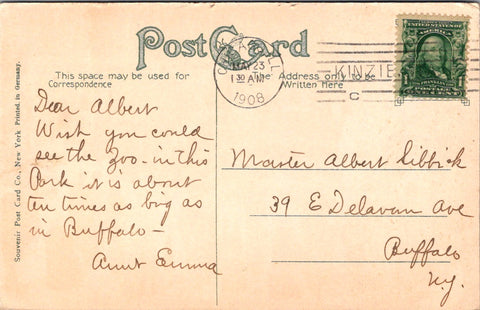 Post Card
This space may be used for
Correspondence
The Address only to be
Written here
CHICAGO, ILL
MAY 23
1 30 AM
1908
KINZIE
C
UNITED STATES OF AMERICA
FRANKLIN
POSTAGE
1 CENT 1
Souvenir Post Card Co., New York Printed in Germany.
Dear Albert
Wish you could
see the Zoo - in this
Park it is about
ten times as big as
in Buffalo -
Aunt Emma
Master Albert Sibbick
39 E Delavan Ave
Buffalo
N.Y.